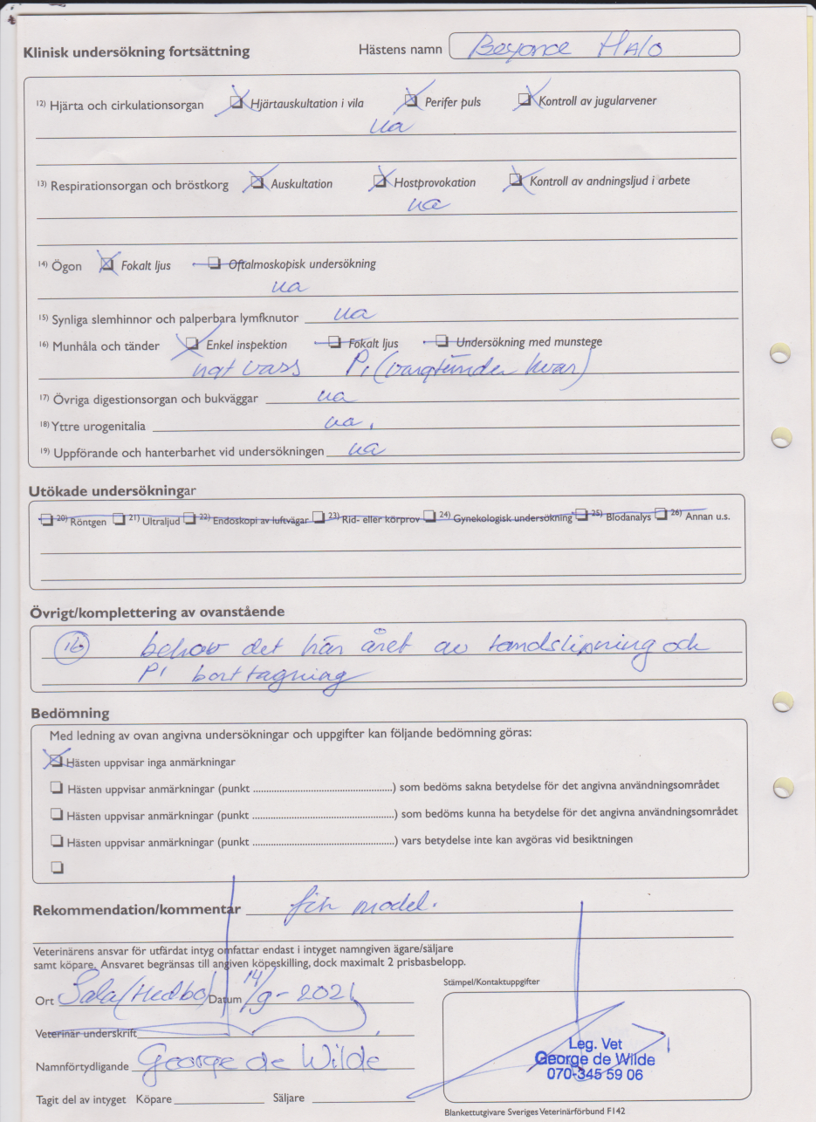 Klinisk undersökning fortsättning Hästens namn Beyonce Halo
12) Hjärta och cirkulationsorgan Hjärtauskultation i vila Perifer puls Kontroll av jugularvener
ua
13) Respirationsorgan och bröstkorg Auskultation Hostprovokation Kontroll av andningsljud i arbete
ua
14) Ögon Fokalt ljus Oftalmoskopisk undersökning
ua
15) Synliga slemhinnor och palperbara lymfknutor ua
16) Munhåla och tänder Enkel inspektion Fokalt ljus Undersökning med munstege
ngt vass P1 (vargtänder kvar)
17) Övriga digestionsorgan och bukväggar ua
18) Yttre urogenitalia ua.
19) Uppförande och hanterbarhet vid undersökningen ua
Utökade undersökningar
20) Röntgen 21) Ultraljud 22) Endoskopi av luftvägar 23) Rid- eller körprov 24) Gynekologisk undersökning 25) Blodanalys 26) Annan u.s.
Övrigt/komplettering av ovanstående
16 behov det här året av tandslipning och
P1 borttagning
Bedömning
Med ledning av ovan angivna undersökningar och uppgifter kan följande bedömning göras:
Hästen uppvisar inga anmärkningar
Hästen uppvisar anmärkningar (punkt ..................................................) som bedöms sakna betydelse för det angivna användningsområdet
Hästen uppvisar anmärkningar (punkt ..................................................) som bedöms kunna ha betydelse för det angivna användningsområdet
Hästen uppvisar anmärkningar (punkt ..................................................) vars betydelse inte kan avgöras vid besiktningen
Rekommendation/kommentar fin model.
Veterinärens ansvar för utfärdat intyg omfattar endast i intyget namngiven ägare/säljare
samt köpare. Ansvaret begränsas till angiven köpeskilling, dock maximalt 2 prisbasbelopp.
Stämpel/Kontaktuppgifter
Ort Sala/Hedbo Datum 14/9-2021
Veterinär underskrift
Leg. Vet
George de Wilde
070-345 59 06
Namnförtydligande George de Wilde
Tagit del av intyget Köpare Säljare
Blankettutgivare Sveriges Veterinärförbund F142